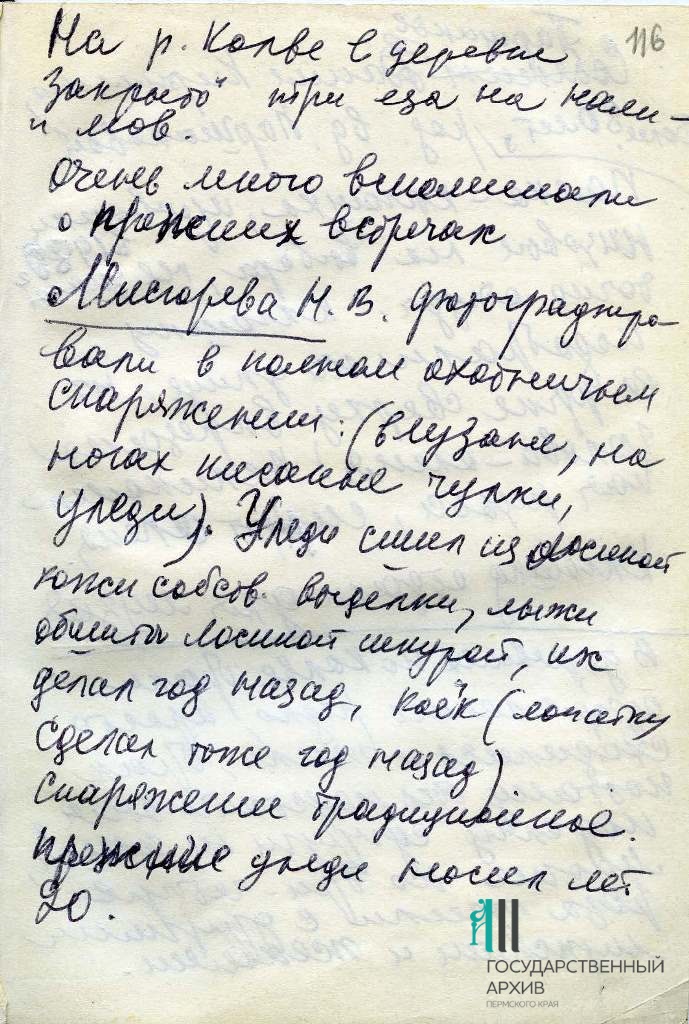 116
На р. Колве в деревне
"Закрыто" три еза на нали-
мов.
Очень много вспоминали
о прежних встречах
Мисюрева Н. В. фотографиро-
вали в полном охотничьем
снаряжении: (в лузане, на
ногах писаные чулки,
уледи). Уледи сшил из лосиной
кожи собств. выделки, лыжи
обшиты лосиной шкурой, их
делал год назад, коёк (лопатку
сделал тоже год назад)
снаряжение традиционное.
прежние уледи носил лет
20.
ГОСУДАРСТВЕННЫЙ
АРХИВ
ПЕРМСКОГО КРАЯ